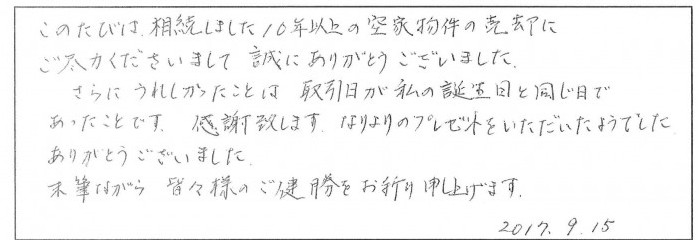 このたびは、相続しました10年以上の空家物件の売却に
ご尽力くださいまして 誠にありがとうございました。
さらに うれしかったことは 取引日が私の誕生日と同じ日で
あったことです。 感謝致します。 なりよりのプレゼントをいただいたようでした。
ありがとうございました。
末筆ながら 皆々様のご健勝をお祈り申し上げます。
2017. 9. 15